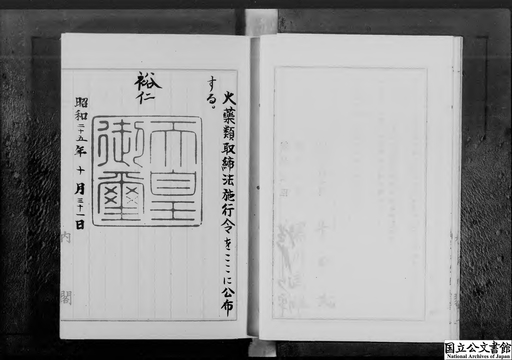 火藥類取締法施行令をここに公布
する。
裕仁
天皇
御璽
昭和二十五年十月三十一日
内閣
国立公文書館
National Archives of Japan